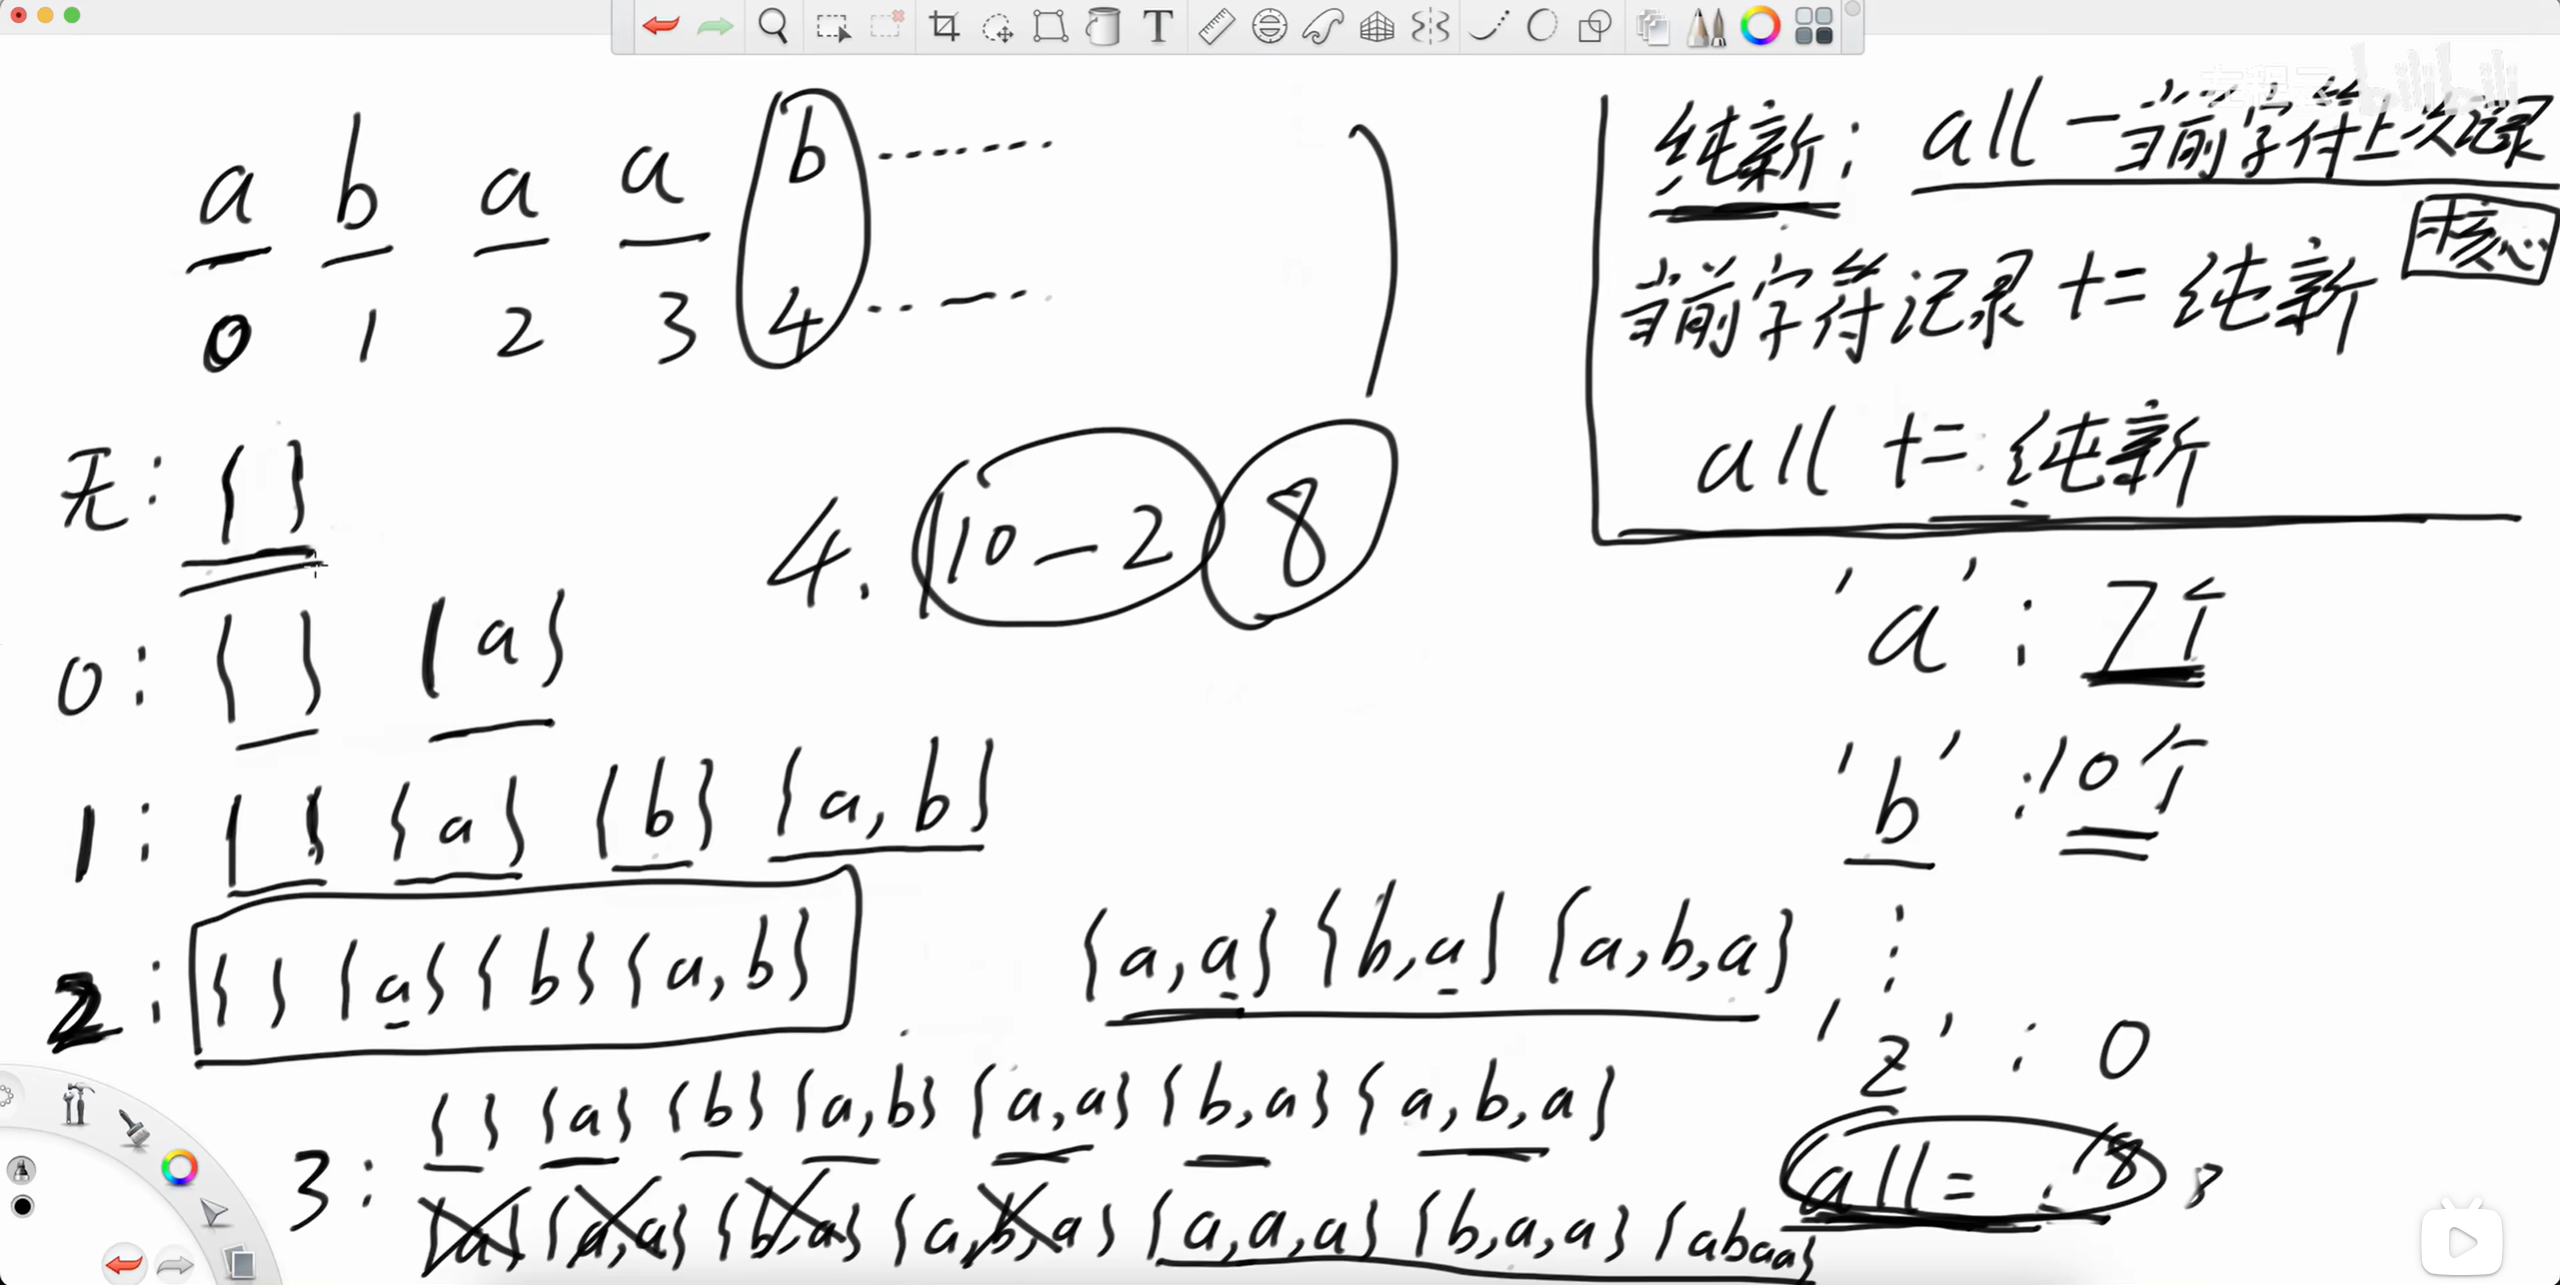 左程云 bilibili
a b a a b ·······
0 1 2 3 4 ··—··
纯新: all - 当前字符上次记录
核心
当前字符记录 += 纯新
all += 纯新
无: { }
4. 10 - 2 8
'a': 7个
0: { } {a}
'b': 10个
1: { } {a} {b} {a,b}
2: { } {a} {b} {a,b} {a,a} {b,a} {a,b,a}
'z': 0
3: { } {a} {b} {a,b} {a,a} {b,a} {a,b,a}
{a} {a,a} {b,a} {a,b,a} {a,a,a} {b,a,a} {abaa}
all = 18